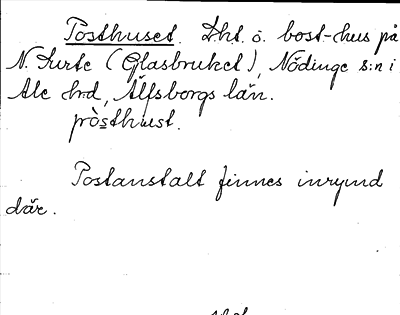 Posthuset. Lht. o. bost-hus på
N. Surte (Glasbruket), Nödinge s:n i
Ale hrd, Älfsborgs län.
pòsthust.
Postanstalt finnes inrymd
där.